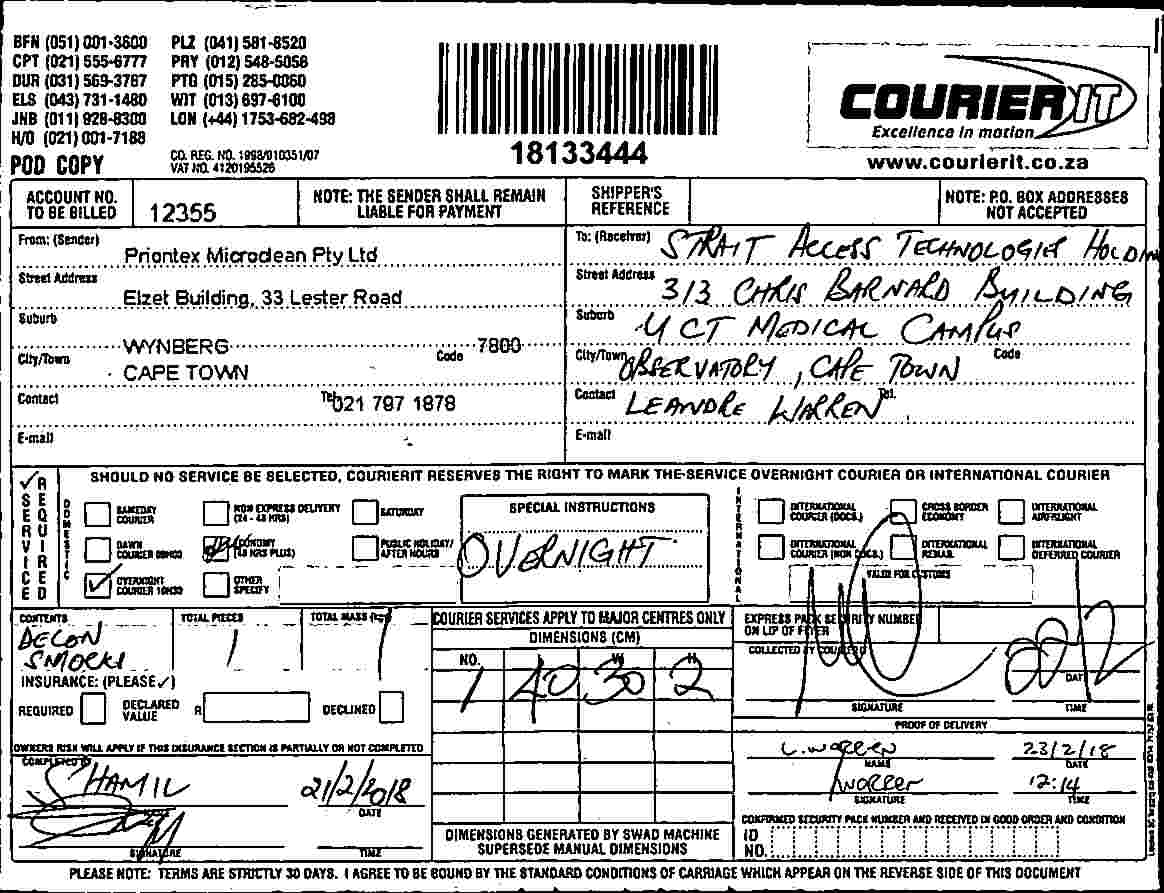 BFN (051) 001-3600 PLZ (041) 581-8520
CPT (021) 555-6777 PRY (012) 548-5056
DUR (031) 569-3767 PTG (015) 285-0060
ELS (043) 731-1480 WIT (013) 697-6100
JNB (011) 928-8300 LON (+44) 1753-682-498
H/O (021) 001-7188
POD COPY
CO. REG. NO. 1998/010351/07
VAT NO. 4120195526
18133444
COURIER IT
Excellence in motion
www.courierit.co.za
ACCOUNT NO. TO BE BILLED 12355
NOTE: THE SENDER SHALL REMAIN LIABLE FOR PAYMENT
SHIPPER'S REFERENCE
NOTE: P.O. BOX ADDRESSES NOT ACCEPTED
From: (Sender) Priontex Microclean Pty Ltd
Street Address Elzet Building, 33 Lester Road
Suburb WYNBERG Code 7800
City/Town CAPE TOWN
Contact Tel 021 797 1878
E-mail
To: (Receiver) STRAIT ACCESS TECHNOLOGIES HOLDIN
Street Address 313 CHRIS BARNARD BUILDING
Suburb UCT MEDICAL CAMPUS
City/Town OBSERVATORY, CAPE TOWN Code
Contact LEANDRE WARREN Tel.
E-mail
SERVICE REQUIRED
SHOULD NO SERVICE BE SELECTED, COURIERIT RESERVES THE RIGHT TO MARK THE SERVICE OVERNIGHT COURIER OR INTERNATIONAL COURIER
DOMESTIC
SAMEDAY COURIER
NON EXPRESS DELIVERY (24 - 48 HRS)
SATURDAY
DAWN COURIER 09H00
ECONOMY (48 HRS PLUS)
PUBLIC HOLIDAY/ AFTER HOURS
OVERNIGHT COURIER 10H30
OTHER SPECIFY
SPECIAL INSTRUCTIONS
OVERNIGHT
INTERNATIONAL
INTERNATIONAL COURIER (DOCS.)
CROSS BORDER ECONOMY
INTERNATIONAL AIRFREIGHT
INTERNATIONAL COURIER (NON DOCS.)
INTERNATIONAL REMAIL
INTERNATIONAL DEFERRED COURIER
VALUE FOR CUSTOMS
CONTENTS TOTAL PIECES TOTAL MASS (kg)
DECON 1 1
SMOCKS
INSURANCE: (PLEASE ✓)
REQUIRED DECLARED VALUE R DECLINED
OWNERS RISK WILL APPLY IF THIS INSURANCE SECTION IS PARTIALLY OR NOT COMPLETED
COMPLETED BY
SHAMIL 21/2/2018
DATE
SIGNATURE TIME
COURIER SERVICES APPLY TO MAJOR CENTRES ONLY
DIMENSIONS (CM)
NO. W H
1 40 30 2
DIMENSIONS GENERATED BY SWAD MACHINE SUPERSEDE MANUAL DIMENSIONS
EXPRESS PACK SECURITY NUMBER ON LIP OF FLYER
COLLECTED BY COURIER
22/2
DATE
SIGNATURE TIME
PROOF OF DELIVERY
L. WARREN 23/2/18
NAME DATE
Warren 12:14
SIGNATURE TIME
CONFIRMED SECURITY PACK NUMBER AND RECEIVED IN GOOD ORDER AND CONDITION
ID NO.
PLEASE NOTE: TERMS ARE STRICTLY 30 DAYS. I AGREE TO BE BOUND BY THE STANDARD CONDITIONS OF CARRIAGE WHICH APPEAR ON THE REVERSE SIDE OF THIS DOCUMENT